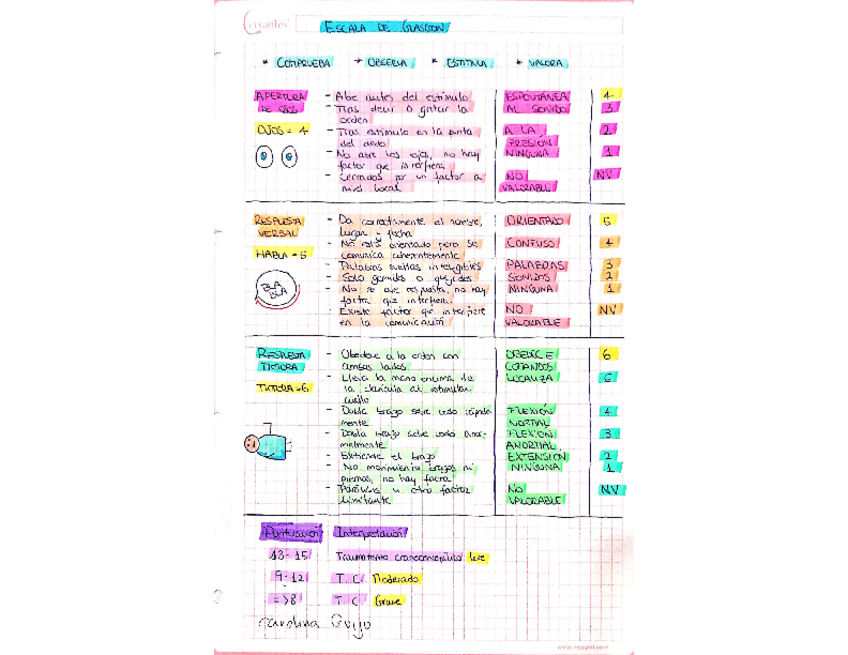 Cervantes
ESCALA DE GLASGOW
* COMPRUEBA * OBSERVA * ESTIMULA * VALORA
APERTURA - Abe antes del estimulo ESPONTÁNEA 4
DE OJOS - Tras decir o gritar la AL SONIDO 3
orden
OJOS = 4 - Tras estimulo en la punta A LA 2
del dedo PRESION
- No abre los ojos, no hay NINGUNA 1
factor que interfiera
- Cerrados por un factor a NO NV
nivel local VALORABLE
RESPUESTA - Da correctamente el nombre, ORIENTADO 5
VERBAL lugar y fecha
- No está orientado pero se CONFUSO 4
HABLA = 5 comunica coherentemente
- Palabras sueltas inteligibles PALABRAS 3
- Solo gemidos o quejidos SONIDOS 2
BLA - No se oye respuesta, no hay NINGUNA 1
BLA factor que interfiera
- Existe factor que interfiere NO NV
en la comunicación VALORABLE
RESPUESTA - Obedece a la orden con OBEDECE 6
MOTORA ambos lados COMANDOS
- Lleva la mano encima de LOCALIZA 5
MOTORA = 6 la clavicula al estimular
cuello
- Dobla brazo sobre codo rápida FLEXIÓN 4
mente NORMAL
- Dobla brazo sobre codo anor- FLEXIÓN 3
malmente ANORMAL
- Extiende el brazo EXTENSION 2
- No movimiento brazos ni NINGUNA 1
piernas, no hay factor
- Parálisis u otro factor NO NV
limitante VALORABLE
Puntuación Interpretación
13-15 Traumatismo craneoencefálico leve
9-12 T.C. Moderado
=>8 T.C Grave
Carolina Guijo